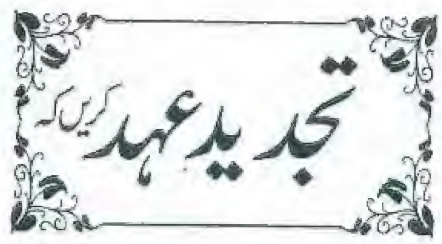 تجدید عہد کریں کہ